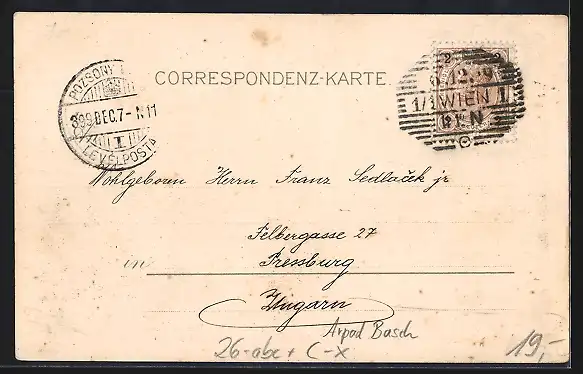 CORRESPONDENZ-KARTE
POZSONY
899 DEC. 7 - N 11
I
LEVÉLPOSTA
2 2
6 12 99
1/1 WIEN 1
Wohlgeboren Herrn Franz Sedlaček jr
Felbergasse 27
in Pressburg
Ungarn
Arpad Basch
26-abc + C-X
19,-